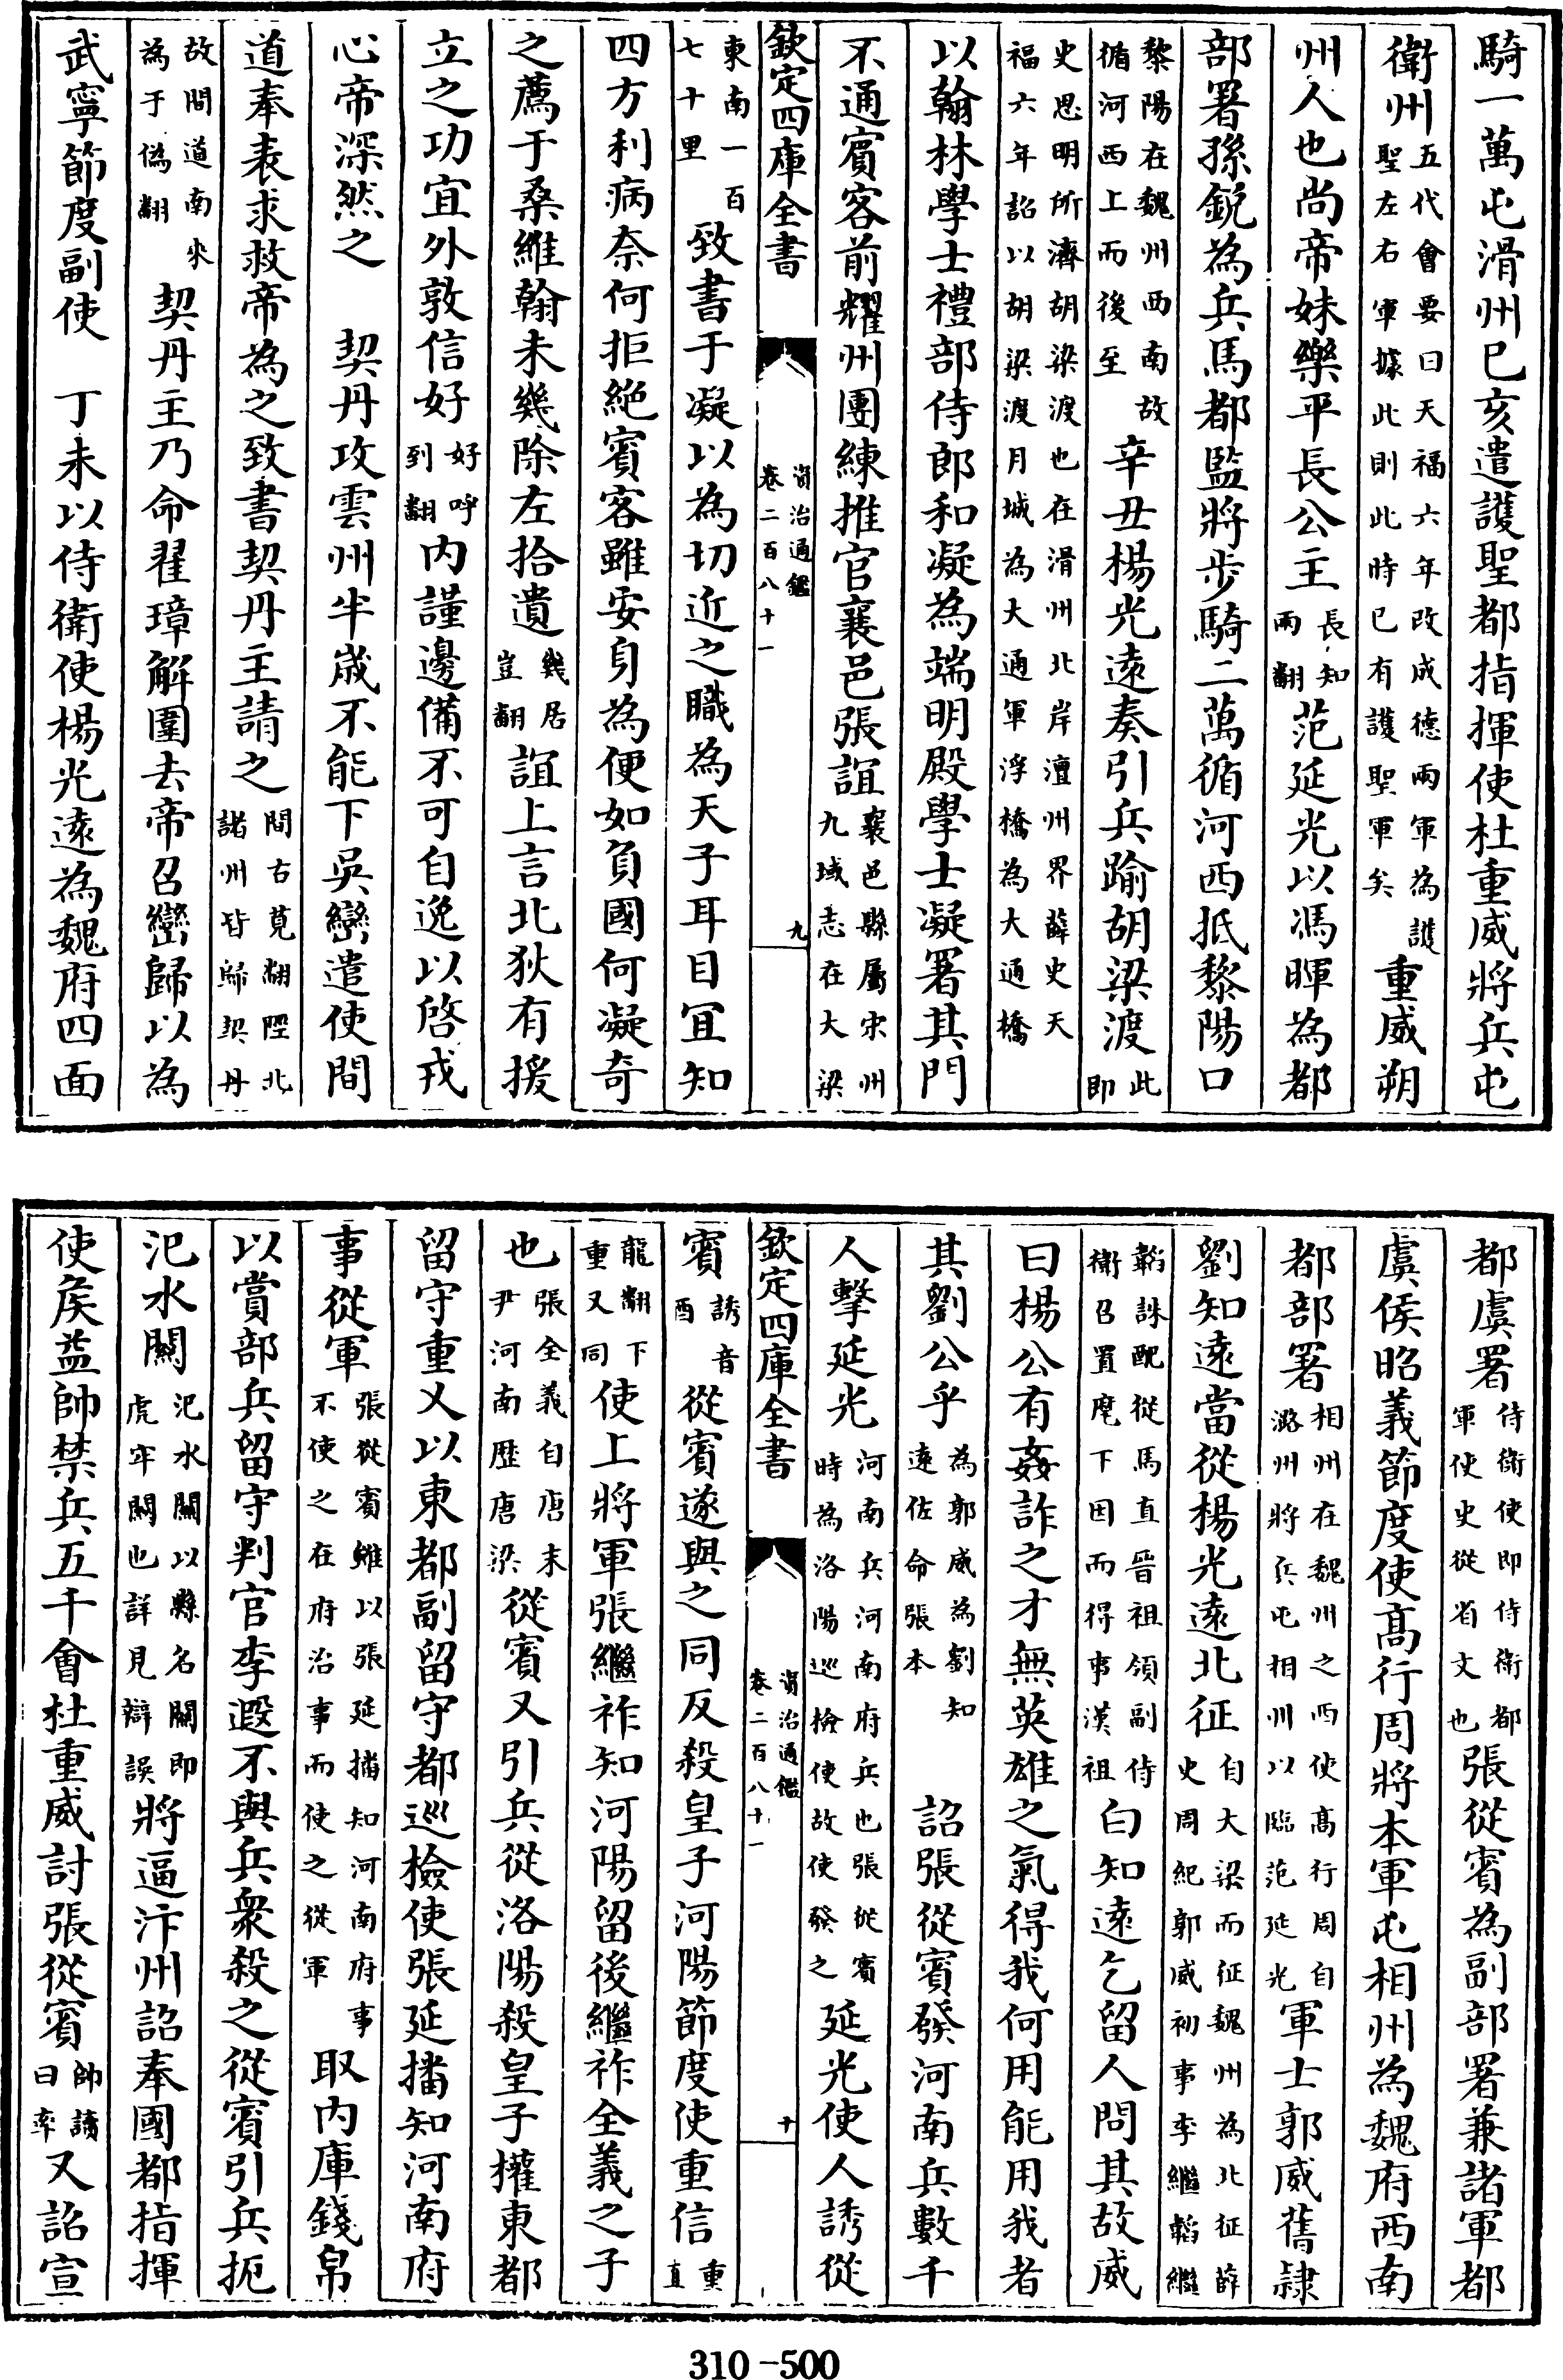 騎一萬屯滑州已亥遣護聖都指揮使杜重威將兵屯
衛州五代會要曰天福六年改成德兩軍為護聖左右軍據此則此時已有護聖軍矣重威朔
州人也尚帝妹樂平長公主長知兩翻范延光以馮暉為都
部署孫銳為兵馬都監將步騎二萬循河西抵黎陽口
黎陽在魏州西南故循河西上而後至辛丑楊光遠奏引兵踰胡梁渡此即
史思明所濟胡梁渡也在滑州北岸澶州界薛史天福六年詔以胡梁渡月城為大通軍浮橋為大通橋
以翰林學士禮部侍郎和凝為端明殿學士凝署其門
不通賓客前耀州團練推官襄邑張誼襄邑縣屬宋州九域志在大梁
欽定四庫全書
資治通鑑
卷二百八十一
九
東南一百七十里致書于凝以為切近之職為天子耳目宜知
四方利病奈何拒絶賓客雖安身為便如負國何凝奇
之薦于桑維翰未幾除左拾遺幾居豈翻誼上言北狄有援
立之功宜外敦信好好呼到翻内謹邊備不可自逸以啓戎
心帝深然之　契丹攻雲州半嵗不能下吳巒遣使間
道奉表求救帝為之致書契丹主請之間古莧翻陘北諸州皆歸契丹
故間道南來為于偽翻契丹主乃命翟璋解圍去帝召巒歸以為
武寧節度副使　丁未以侍衛使楊光遠為魏府四面
都虞署侍衛使即侍衛都軍使史從省文也張從賓為副部署兼諸軍都
虞侯昭義節度使髙行周將本軍屯相州為魏府西南
都部署相州在魏州之西使髙行周自潞州將兵屯相州以臨范延光軍士郭威舊隷
劉知遠當從楊光遠北征自大梁而征魏州為北征薛史周紀郭威初事李繼韜繼
韜誅配從馬直晉祖領副侍衛召置麾下因而得事漢祖白知遠乞留人問其故威
曰楊公有姦詐之才無英雄之氣得我何用能用我者
其劉公乎為郭威為劉知遠佐命張本　詔張從賓發河南兵數千
人擊延光河南兵河南府兵也張從賓時為洛陽巡檢使故使發之延光使人誘從
欽定四庫全書
資治通鑑
卷二百八十一
十
賓誘音酉從賓遂與之同反殺皇子河陽節度使重信重直
龍翻下重乂同使上將軍張繼祚知河陽留後繼祚全義之子
也張全義自唐末尹河南歴唐梁從賓又引兵從洛陽殺皇子權東都
留守重乂以東都副留守都巡檢使張延播知河南府
事從軍張從賓雖以張延播知河南府事不使之在府治事而使之從軍取内庫錢帛
以賞部兵留守判官李遐不與兵衆殺之從賓引兵扼
汜水闗汜水關以縣名關即虎牢關也詳見辯誤將逼汴州詔奉國都指揮
使侯益帥禁兵五千會杜重威討張從賓帥讀曰率又詔宣
310-500